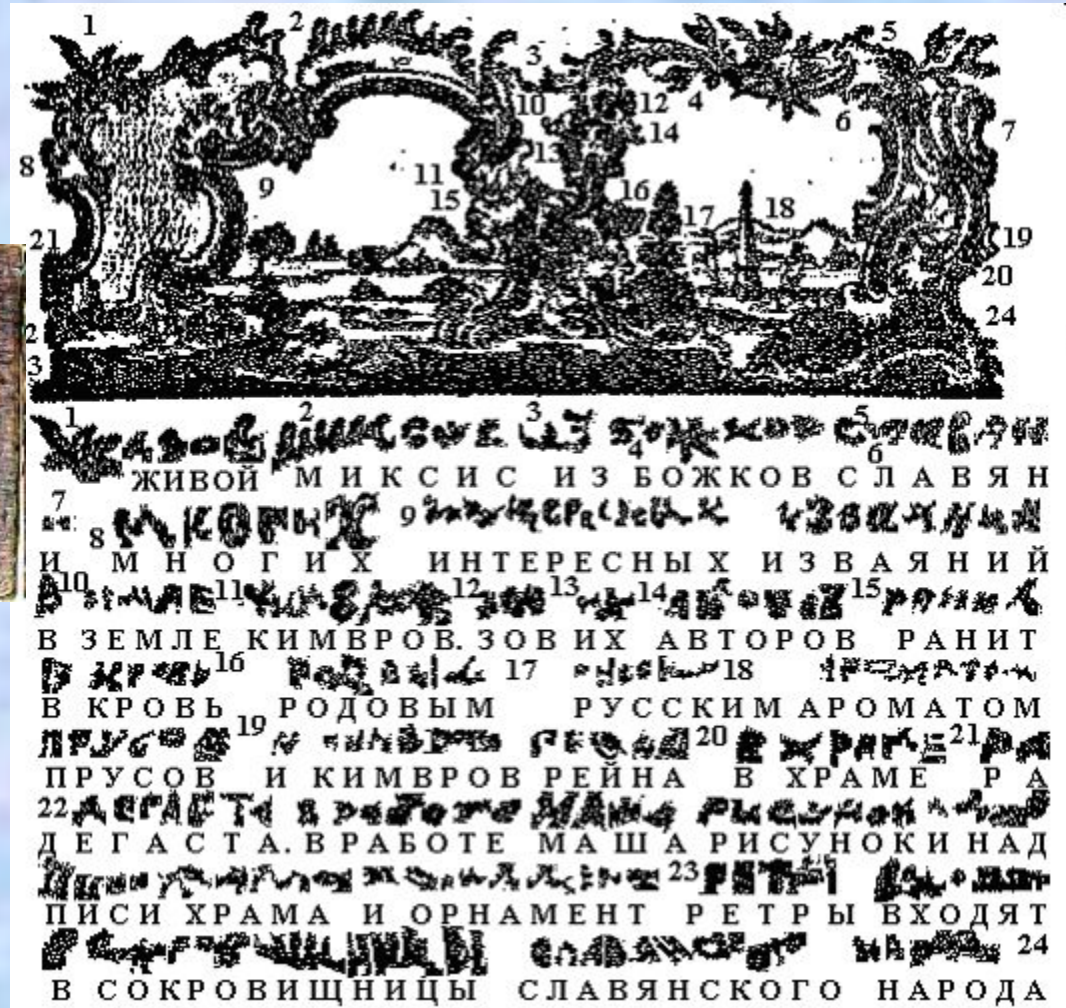 1 2 3 5
10 12 4
13 14 6 7
8 9 11
15 16 17 18
21 19
20
2 24
3
1 2 3 4 5 6
ЖИВОЙ МИКСИС ИЗ БОЖКОВ СЛАВЯН
7 8 9
И МНОГИХ ИНТЕРЕСНЫХ ИЗВАЯНИЙ
10 11 12 13 14 15
В ЗЕМЛЕ КИМВРОВ. ЗОВ ИХ АВТОРОВ РАНИТ
16 17 18
В КРОВЬ РОДОВЫМ РУССКИМ АРОМАТОМ
19 20 21
ПРУСОВ И КИМВРОВ РЕЙНА В ХРАМЕ РА
22
ДЕГАСТА. В РАБОТЕ МАША РИСУНОК И НАД
23
ПИСИ ХРАМА И ОРНАМЕНТ РЕТРЫ ВХОДЯТ
24
В СОКРОВИЩНИЦЫ СЛАВЯНСКОГО НАРОДА